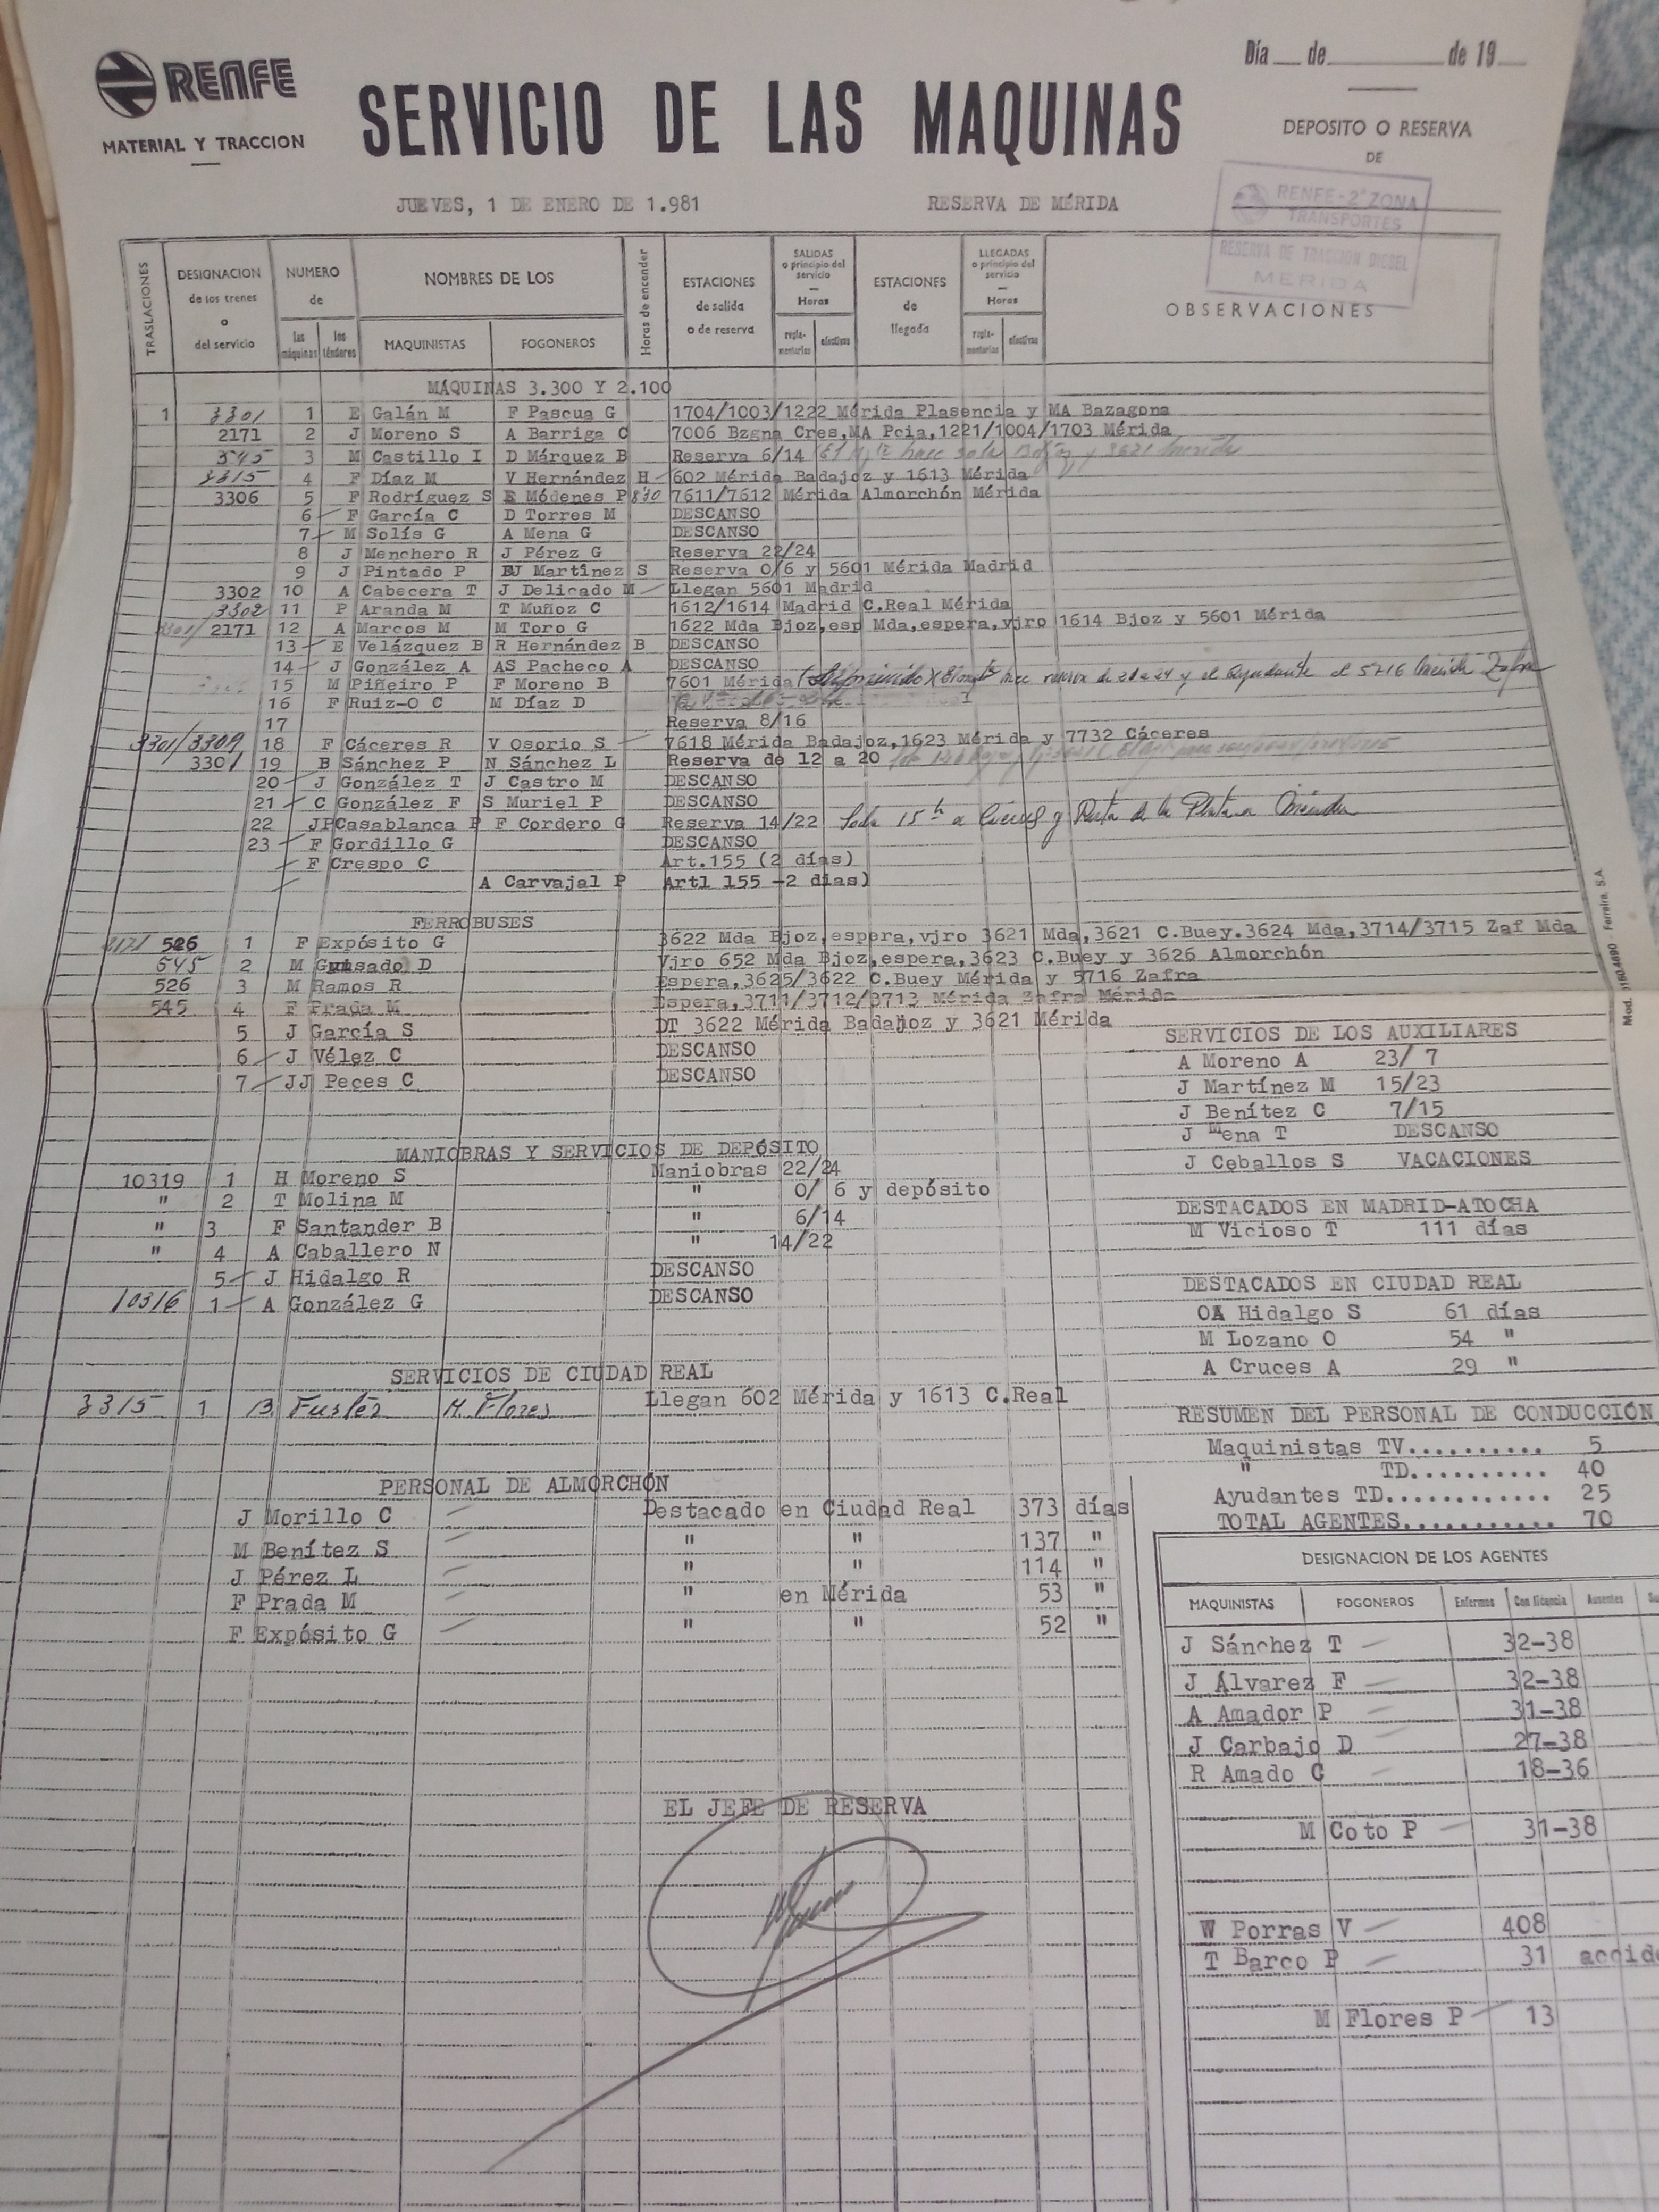 RENFE
MATERIAL Y TRACCION
SERVICIO DE LAS MAQUINAS
Día de de 19
DEPOSITO O RESERVA
DE
JUEVES, 1 DE ENERO DE 1.981 RESERVA DE MÉRIDA
RENFE-2ª ZONA
TRANSPORTES
RESERVA DE TRACCION DIESEL
MERIDA
TRASLACIONES
DESIGNACION
de los trenes
o
del servicio
NUMERO
de
las máquinas
los ténderes
NOMBRES DE LOS
MAQUINISTAS FOGONEROS
Horas de encender
ESTACIONES
de salida
o de reserva
SALIDAS
o principio del
servicio
Horas
regla-
mentarias
efectivas
ESTACIONES
de
llegada
LLEGADAS
o principio del
servicio
Horas
regla-
mentarias
efectivas
OBSERVACIONES
MÁQUINAS 3.300 Y 2.100
1 3301 1 E Galán M F Pascua G 1704/1003/1222 Mérida Plasencia y MA Bazagona
2171 2 J Moreno S A Barriga C 7006 Bzgna Cres,MA Pcia,1221/1004/1703 Mérida
545 3 M Castillo I D Márquez B Reserva 6/14 hace y 3621 Mérida
3315 4 F Díaz M V Hernández H 602 Mérida Badajoz y 1613 Mérida
3306 5 F Rodríguez S E Módenes P 8'30 7611/7612 Mérida Almorchón Mérida
6 F García C D Torres M DESCANSO
7 M Solís G A Mena G DESCANSO
8 J Menchero R J Pérez G Reserva 22/24
9 J Pintado P J Martínez S Reserva 0/6 y 5601 Mérida Madrid
3302 10 A Cabecera T J Delicado M Llegan 5601 Madrid
3302 11 P Aranda M T Muñoz C 1612/1614 Madrid C.Real Mérida
3301/2171 12 A Marcos M M Toro G 1622 Mda Bjoz,esp Mda,espera,vjro 1614 Bjoz y 5601 Mérida
13 E Velázquez B R Hernández B DESCANSO
14 J González A AS Pacheco A DESCANSO
15 M Piñeiro P F Moreno B 7601 Mérida (Suprimido) hace reserva de y el Ayudante el 5716 Mérida Zafra
16 F Ruiz-O C M Díaz D
17 Reserva 8/16
3301/3309 18 F Cáceres R V Osorio S 7618 Mérida Badajoz,1623 Mérida y 7732 Cáceres
3301 19 B Sánchez P N Sánchez L Reserva de 12 a 20
20 J González T J Castro M DESCANSO
21 C González F S Muriel P DESCANSO
22 JP Casablanca P F Cordero G Reserva 14/22 Sale 15 h a Cáceres y Ruta de la Plata a Mérida
23 F Gordillo G DESCANSO
F Crespo C Art.155 (2 días)
A Carvajal P Artl 155 -2 días)
FERROBUSES
2171 526 1 F Expósito G 3622 Mda Bjoz,espera,vjro 3621 Mda,3621 C.Buey.3624 Mda,3714/3715 Zaf Mda
545 2 M Guisado D Vjro 652 Mda Bjoz,espera,3623 C.Buey y 3626 Almorchón
526 3 M Ramos R Espera,3625/3622 C.Buey Mérida y 5716 Zafra
545 4 F Prada M Espera,3711/3712/3713 Mérida Zafra Mérida
5 J García S DT 3622 Mérida Badajoz y 3621 Mérida
6 J Vélez C DESCANSO
7 JJ Peces C DESCANSO
Mod. Ferreira, S.A.
SERVICIOS DE LOS AUXILIARES
A Moreno A 23/ 7
J Martínez M 15/23
J Benítez C 7/15
J Mena T DESCANSO
J Ceballos S VACACIONES
MANIOBRAS Y SERVICIOS DE DEPÓSITO
10319 1 H Moreno S Maniobras 22/24
" 2 T Molina M " 0/ 6 y depósito
" 3 F Santander B " 6/14
" 4 A Caballero N " 14/22
5 J Hidalgo R DESCANSO
10316 1 A González G DESCANSO
DESTACADOS EN MADRID-ATOCHA
M Vicioso T 111 días
DESTACADOS EN CIUDAD REAL
OA Hidalgo S 61 días
M Lozano O 54 "
A Cruces A 29 "
SERVICIOS DE CIUDAD REAL
3315 1 B Fuster M. Flores Llegan 602 Mérida y 1613 C.Real
RESUMEN DEL PERSONAL DE CONDUCCIÓN
Maquinistas TV.......... 5
" TD.......... 40
Ayudantes TD............ 25
TOTAL AGENTES........... 70
PERSONAL DE ALMORCHÓN
J Morillo C Destacado en Ciudad Real 373 días
M Benítez S " " 137 "
J Pérez L " " 114 "
F Prada M " en Mérida 53 "
F Expósito G " " 52 "
DESIGNACION DE LOS AGENTES
MAQUINISTAS FOGONEROS Enfermos Con licencia Ausentes
J Sánchez T 32-38
J Álvarez F 32-38
A Amador P 31-38
J Carbajo D 27-38
R Amado C 18-36
M Coto P 31-38
W Porras V 408
T Barco P 31 accide
M Flores P 13
EL JEFE DE RESERVA